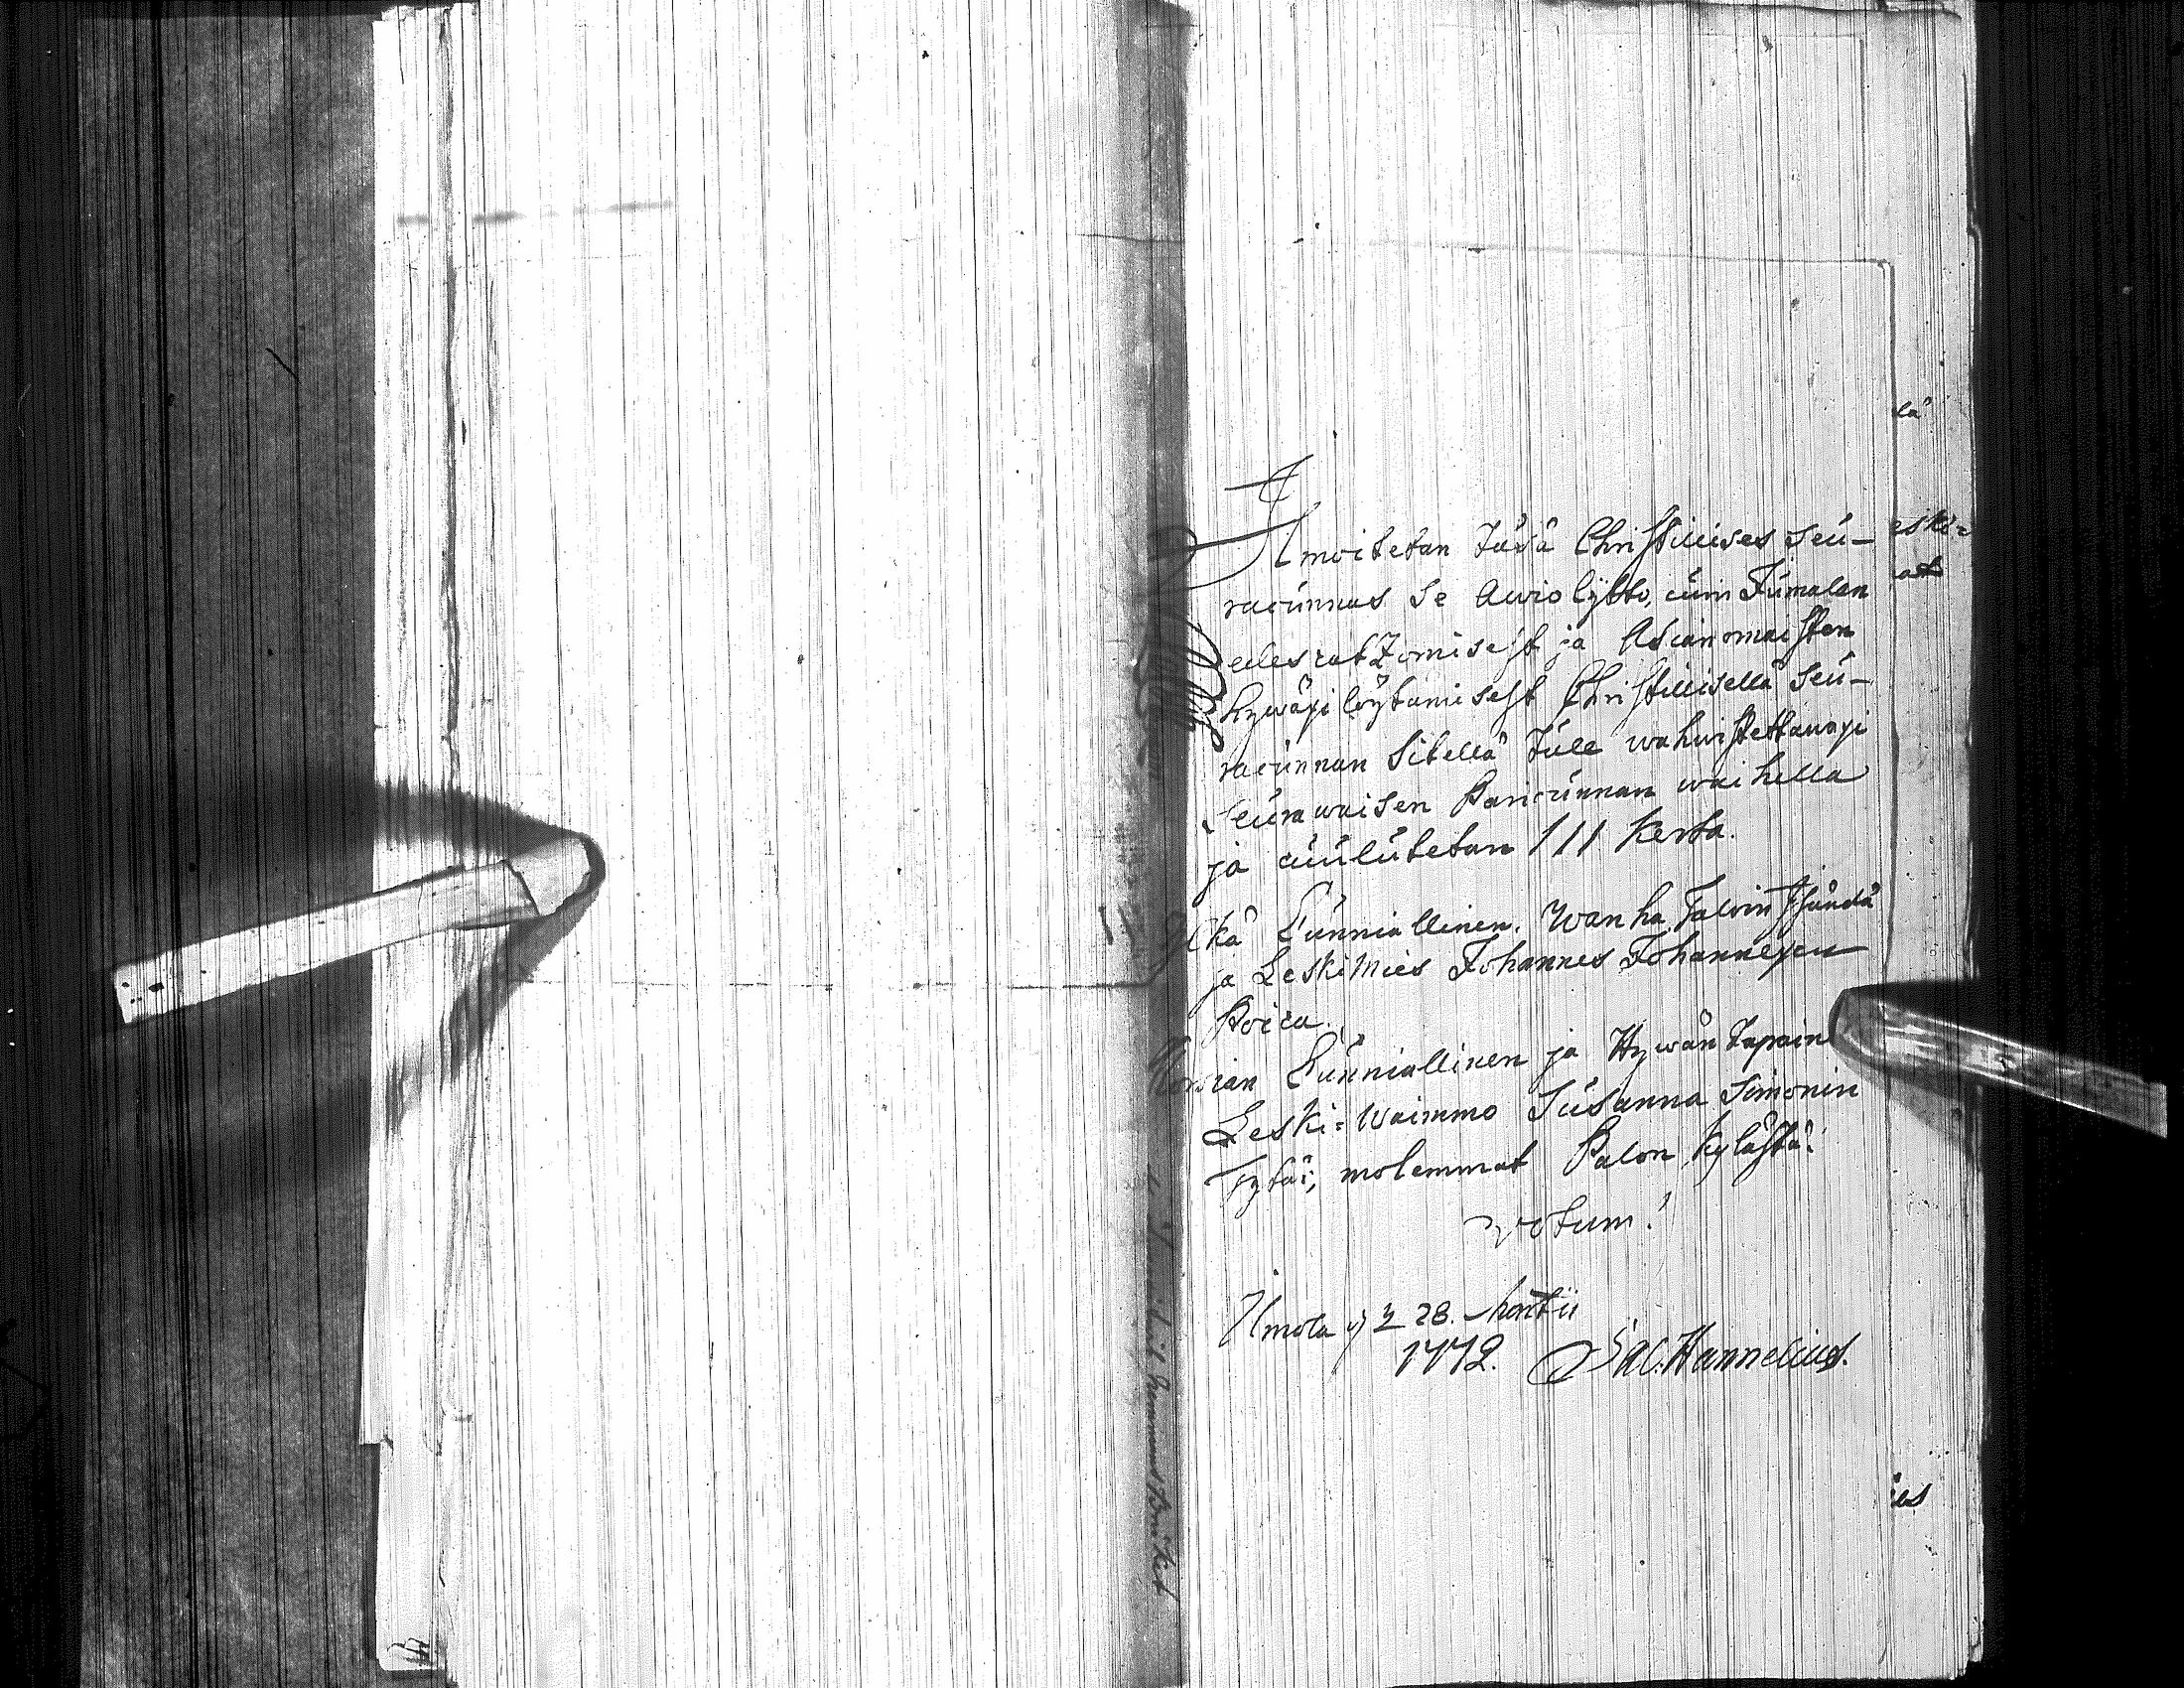 Ilmoitetan täsä Christillises Seu-
racunnas se Awiolijtto, cuin Jumalan
edescatzomisest ja Asianomaisten
hywäxi löytämisest Christillisellä Seu-
racunnan Sitellä tule wahwistettawaxi
Seurawaisen Paricunnan waihella
ja cuulutetan III Kerta.
ylkä Cunniallinen Wanha Talon Isändä
ja LeskiMies Johannes Johannexen
Poica.
Morsian Cunniallinen ja Hywän tapainen
Leski-Waimmo Susanna Simonin
Tytär, molemmat Palon kylästä.
votum!
Ilmola 28. Martii
1772. Sal. Hannelius.
lä
eskö-
at